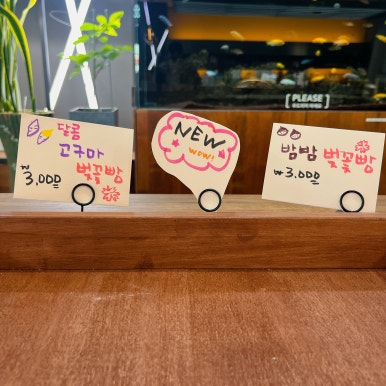 [ PLEASE ]
달콤
고구마
벚꽃빵
₩3,000
NEW
WOW!
밤밤 벚꽃빵
₩3,000